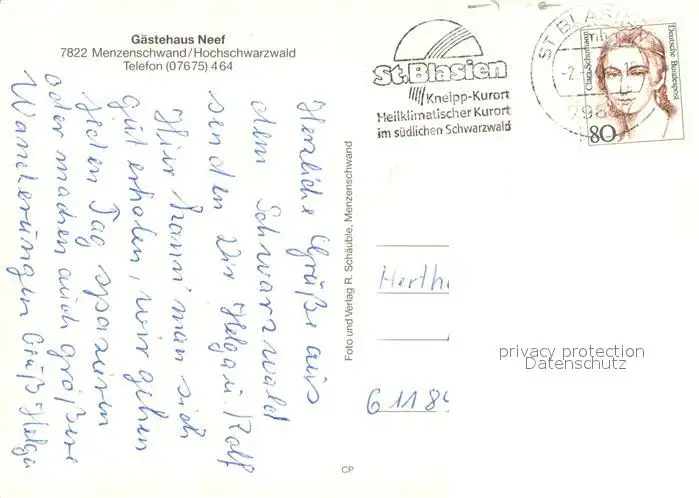 Gästehaus Neef
7822 Menzenschwand/Hochschwarzwald
Telefon (07675) 464
Herzliche Grüße aus
dem Schwarzwald
senden Dir Helga u. Rolf
Hier kann man sich
gut erholen, wir gehen
jeden Tag spazieren
oder machen auch größere
Wanderungen Gruß Helga
Foto und Verlag R. Schäuble, Menzenschwand
CP
St. Blasien
Kneipp-Kurort
Heilklimatischer Kurort
im südlichen Schwarzwald
ST BLASIEN
Clara Schumann
Deutsche Bundespost
80
Herth
6 11 84
privacy protection
Datenschutz